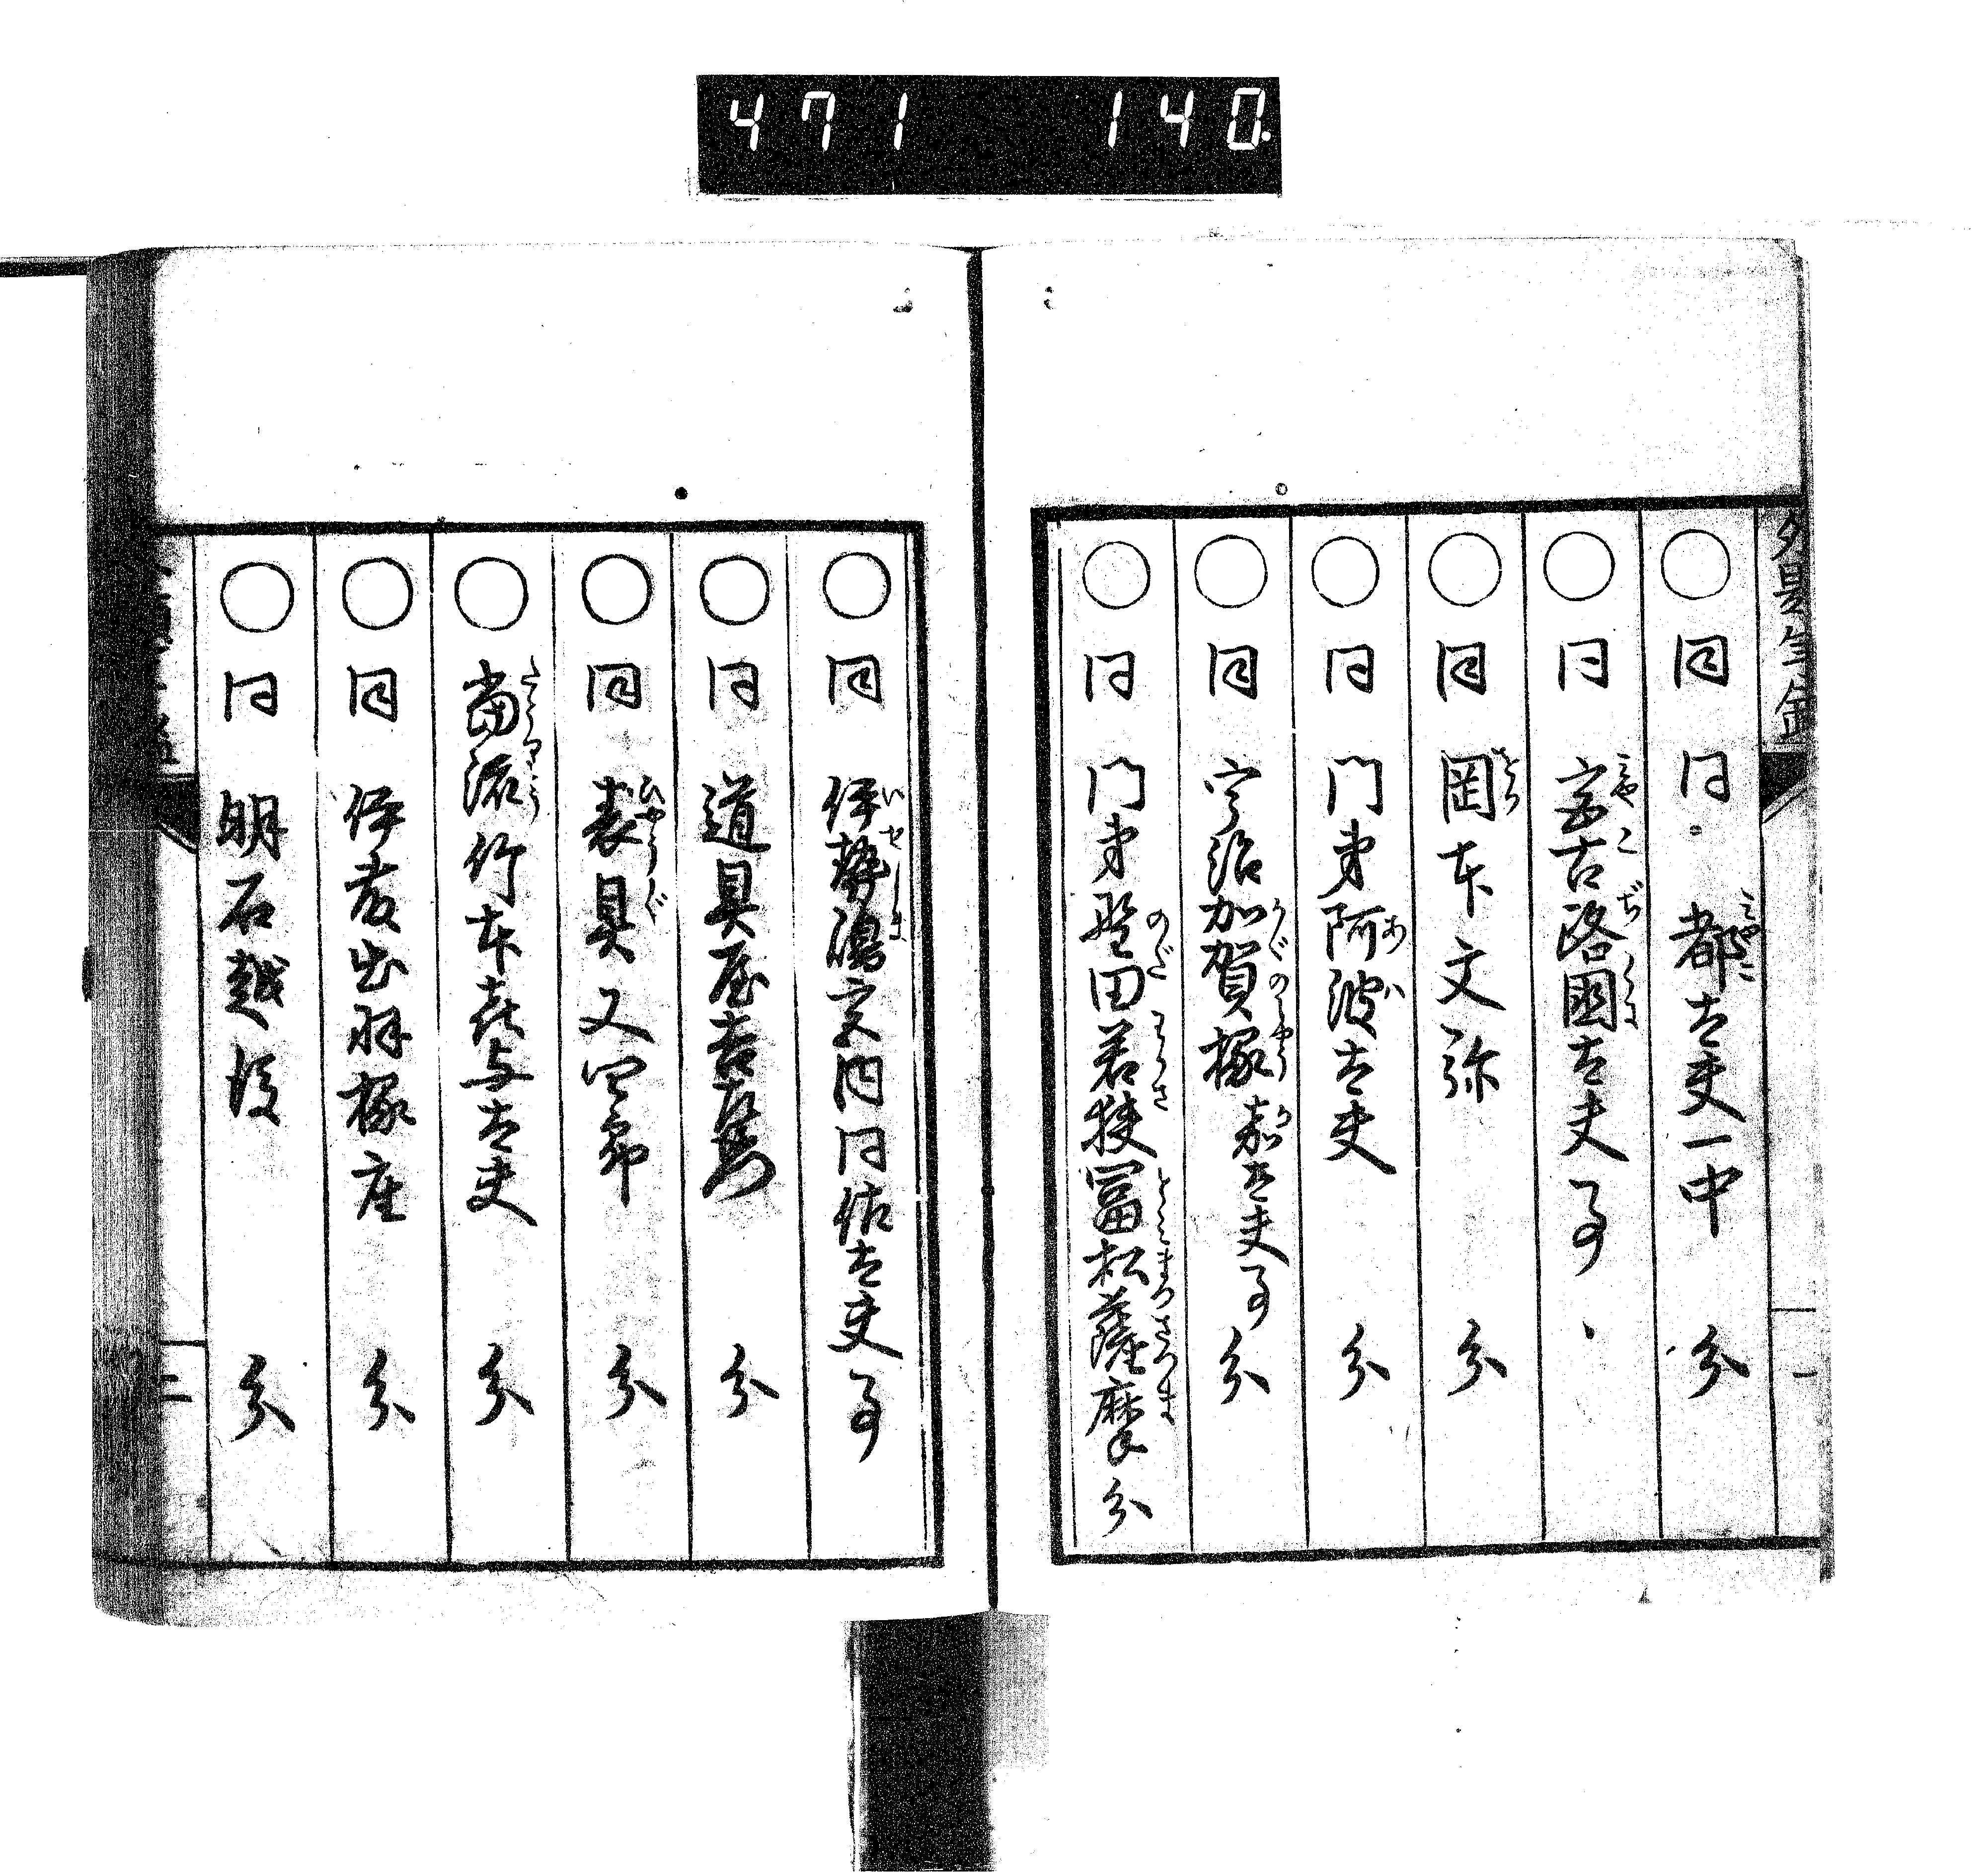 471 140.
○同 同 都太夫一中 分
○同 宮古路國太夫事
○同 岡本文弥 分
○同 門弟阿波太夫 分
○同 宇治加賀掾 嘉太夫事 分
○同 門弟野田若狭冨松薩摩分
一
○同 伊勢嶋宮内同佐太夫事
○同 道具屋吉左衛門 分
○同 表具又四郎 分
○當流竹本喜与太夫 分
○同 伊藤出羽掾座 分
○同 明石越後 分
二